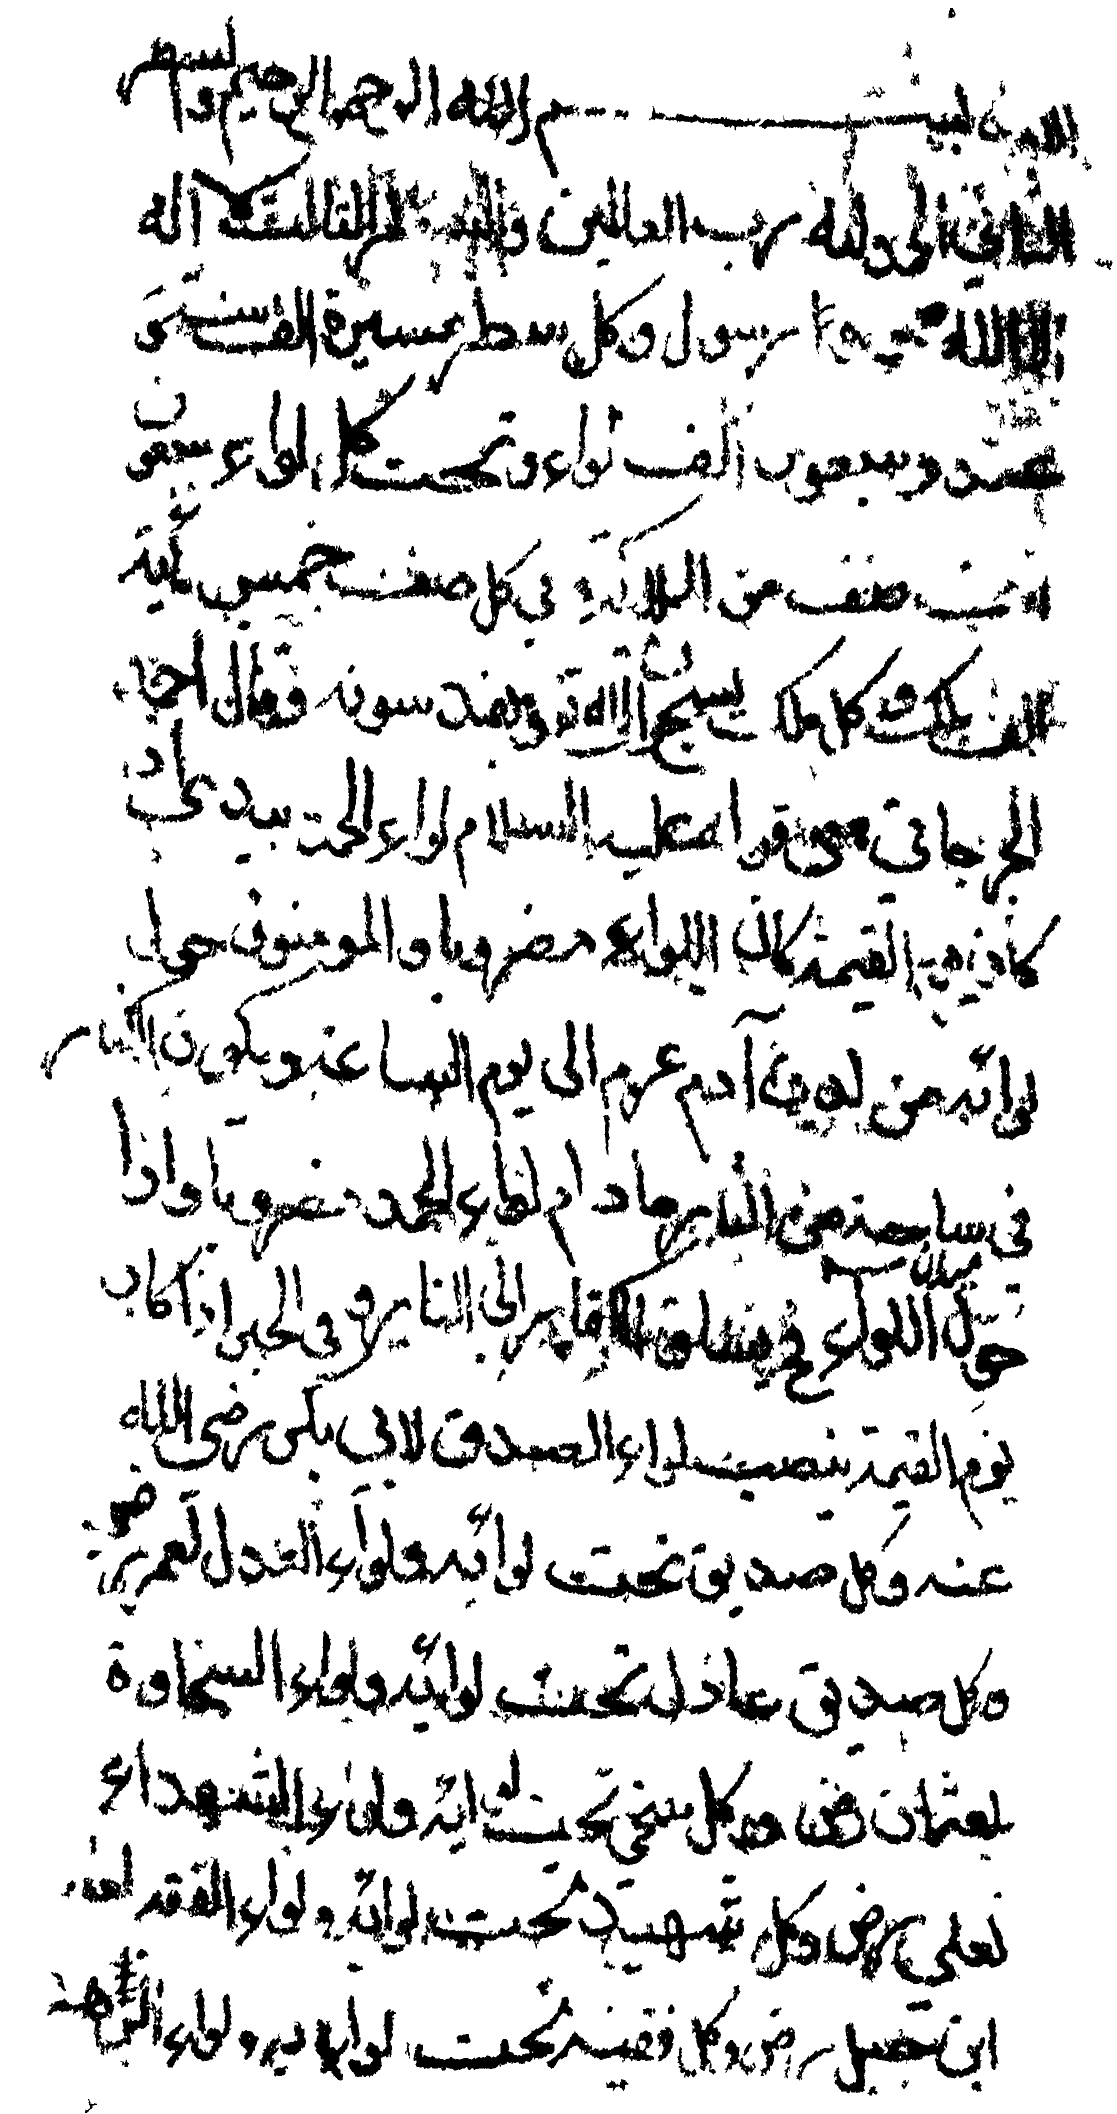 الاول بسم الله الرحمن الرحيم والسطر
الثاني الحمد لله رب العالمين والسطر الثالث لا اله
الا الله محمد رسول وكل سطر مسيرة الف سنة
عنده وسبعون الف لواء وتحت كل لواء سبعون
الف صف من الملائكة في كل صف خمس مائة
الف ملك وكل ملك يسبح الله ويقدسونه وقال احمد
الجرجاني معنى قوله عليه السلام لواء الحمد بيدي اذا
كان يوم القيمة كان اللواء مضروبا والمومنون حول
لوائه من لدن آدم عم الى يوم الساعة ويكون الكفار
في ساحة من النار ما دام لواء الحمد مضروبا واذا
حول اللواء ح ينساق الكفار الى النار وفي الخبر اذا كان
يوم القيمة ينصب لواء الصدق لابي بكر رضي الله
عنه وكل صديق تحت لوائه ولواء العدل لعمر رض
وكل صديق عادل تحت لوائه ولواء السخاوة
لعثمان رض وكل سخي تحت لوائه ولواء الشهداء
لعلي رض وكل شهيد تحت لوائه ولواء الفقه لمعاذ
ابن جبل رض وكل فقيه تحت لوائه ولواء الزهد